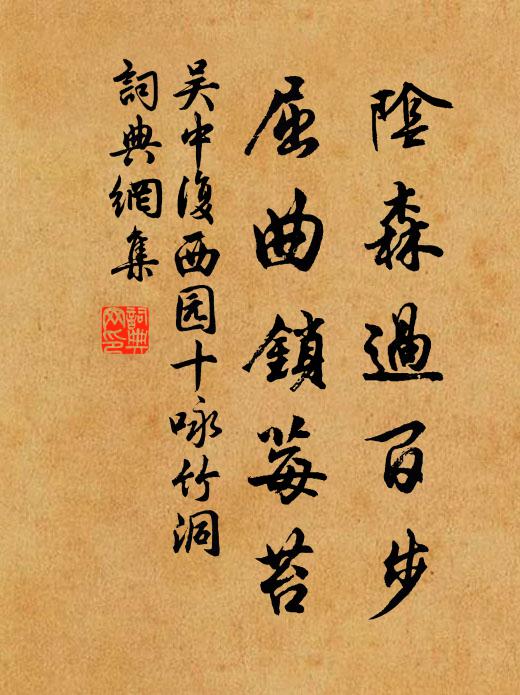 陰森過百步
屈曲鎖莓苔
吴中復西园十咏竹洞
詞典網集
詞典網印